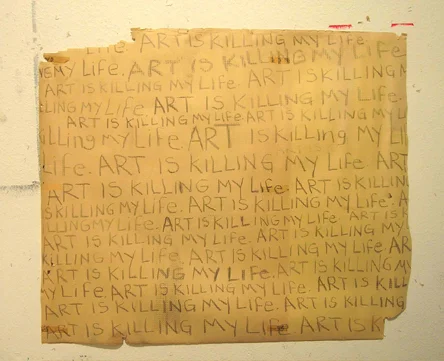 Life. ART IS KILLING MY Life
MY Life. ART IS KILLING MY Life
ART IS KILLING MY Life. ART IS KILLING
KILLING MY Life ART IS KILLING MY Life.
ART IS KILLING MY Life ART IS KILLING MY
killing my Life. ART is killing my Li
Life. ART IS KILLING MY Life ART
ART IS KILLING MY Life. ART IS KILLING
KILLING MY Life. ART IS KILLING MY Life. A
KILLING MY Life. ART IS KILLING MY Life ART IS
ART IS KILLING MY Life. ART IS KILLING MY
KILLING MY Life. ART IS KILLING MY Life. AR
ART IS KILLING MY Life. ART IS KILLING MY
MY Life. ART IS KILLING MY Life. ART IS KILL
ART IS KILLING MY Life. ART IS KILLING
ART IS KILLING MY Life ART IS K